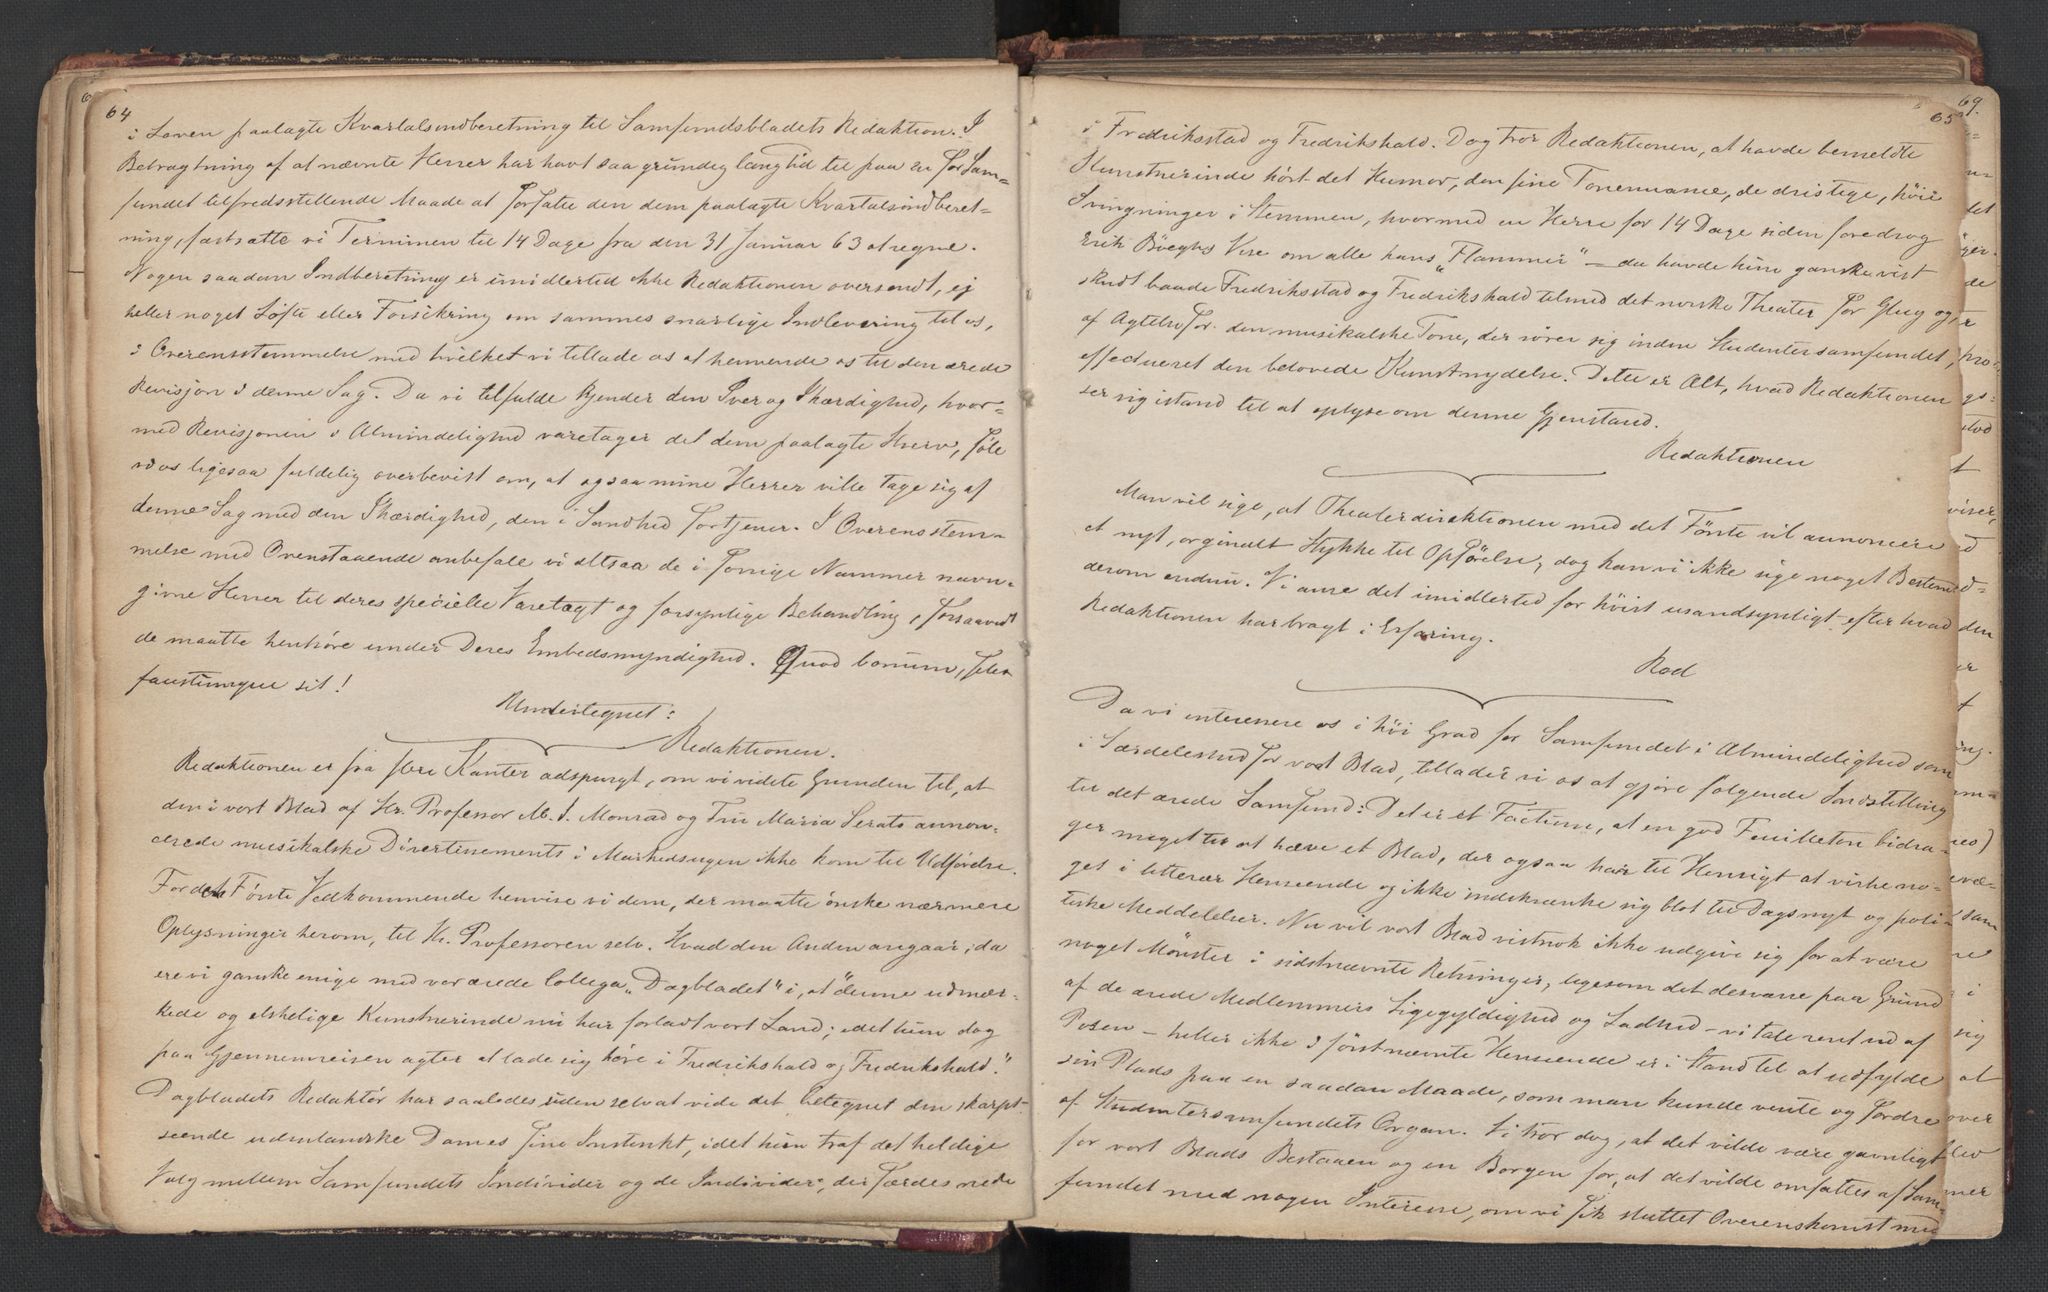 64
i Loven paalagte Kvartalsindberetning til Samfundsbladets Redaktion. I
Betragtning af at nævnte Herrer har havt saa grundig lang tid til paa en for Sam=
fundet tilfredsstillende Maade at forfatte den dem paalagte Kvartalsindberet=
ning, fastsatte vi Terminen til 14 Dage fra den 31 Januar 63 at regne.
Nogen saadan Indberetning er imidlertid ikke Redaktionen oversendt, ej
heller noget Løfte eller Forsikring om sammes snarlige Indlevering til os,
i Overensstemmelse med hvilket vi tillade os at henvende os til den ærede
Revisjon i denne Sag. Da vi tilfulde kjender den Iver og Ihærdighed, hvor=
med Revisjonen i Almindelighed varetager det dem paalagte Hverv, føle
vi os ligesaa fuldelig overbevist om, at ogsaa mine Herrer ville tage sig af
denne Sag med den Ihærdighed, den i Sandhed fortjener. I Overensstem=
melse med Ovenstaaende anbefale vi altsaa de i forrige Nummer navn=
givne Herrer til deres specielle Varetægt og forsynlige Behandling, forsaavidt
de maatte henhøre under Deres Embedsmyndighed. Quod bonum, felix
faustumque sit!
Undertegnet:
Redaktionen.
Redaktionen er fra flere Kanter adspurgt, om vi vidste Grunden til, at
den i vort Blad af Hr. Professor M. J. Monrad og Fru Maria Serato annon=
cerede musikalske Divertinements i Markedsugen ikke kom til Udførelse.
For dets Første Vedkommende henvise vi dem, der maatte ønske nærmere
Oplysninger herom, til Hr. Professoren selv. Hvad den Anden angaar, da
ere vi ganske enige med vor ærede Collega „Dagbladet" i, at "denne udmær=
kede og elskelige Kunstnerinde nu har forladt vort Land; idet hun dog
paa Gjennemreisen agter at lade sig høre i Fredrikshald og Fredrikshald."
Dagbladets Redaktør har saaledes uden selv at vide det betegnet den skarpt=
seende udenlandske Dames fine Instinkt, idet hun traf det heldige
Valg mellem Samfundets Individer og de Individer, der færdes nede
65
i Fredriksstad og Fredrikshald. Dog tror Redaktionen, at havde bemeldte
Kunstnerinde hørt det Humor, den fine Tonenuance, de dristige, høie
Svingninger i Stemmen, hvormed en Herre for 14 Dage siden foredrog
Erik Bøeghs Vise om alle hans „Flammer" – da havde hun ganske vist
skudt baade Fredriksstad og Fredrikshald tilmed det norske Theater for Glug og,
af Agtelse for den musikalske Tone, der rører sig inden Studentersamfundet,
effectueret den belovede Kunstnydelse. Dette er Alt, hvad Redaktionen
ser sig istand til at oplyse om denne Gjenstand.
Redaktionen
Man vil sige, at Theaterdirektionen med det Første vil annoncere
et nyt, orginalt Stykke til Opførelse, dog kan vi ikke sige noget Bestemt
derom endnu. Vi anse det imidlertid for høist usandsynligt efter hvad
Redaktionen har bragt i Erfaring.
Red
Da vi interessere os i høi Grad for Samfundet i Almindelighed som
i Særdeleshed for vort Blad, tillader vi os at gjøre følgende Indstilling
til det ærede Samfund: Det er et Factum, at en god Feuilleton bidra=
ger meget til at hæve et Blad, der ogsaa har til Hensigt at virke no=
get i litterær Henseende og ikke indskrænke sig blot til Dagsnyt og poli=
tiske Meddelelser. Nu vil vort Blad vistnok ikke udgive sig for at være
noget Mønster i sidstnævnte Retninger, ligesom det desværre paa Grund
af de ærede Medlemmers Ligegyldighed og Ladhed – vi tale rent ud af
Posen – heller ikke i førstnævnte Henseende er i Stand til at udfylde
sin Plads paa en saadan Maade, som man kunde vente og fordre
af Studentersamfundets Organ. Vi tror dog, at det vilde være gavnligt
for vort Blads Bestaaen og en Borgen for, at det vilde omfattes af Sam=
fundet med nogen Interesse, om vi fik sluttet Overenskomst med
69.